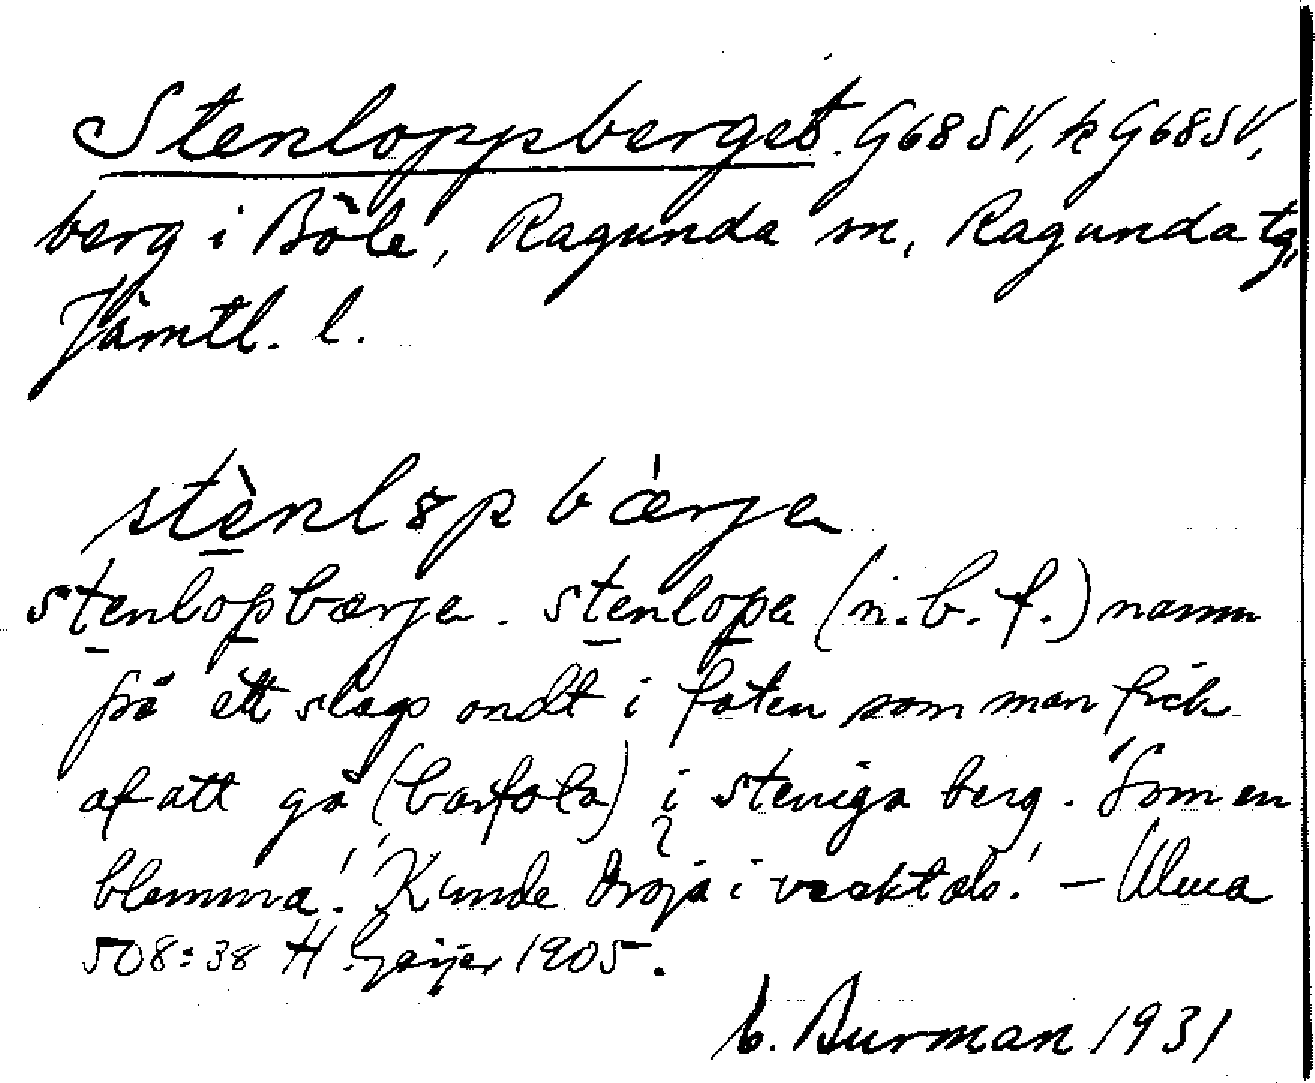 Stenloppberget. G68SV, k G68SV,
berg i Böle, Ragunda sn, Ragunda tg,
Jämtl. l.
stènlɞp bærjɐ
stenlopbærje. stenlope (n.b.f.) namn
frå ett slags ondt i foten som man fick
af att gå (barfota) i steniga berg. "Som en
blemma!" Kunde dröja i vecktals! – Ulma
508:38 H. Geijer 1905.
b. Burman 1931